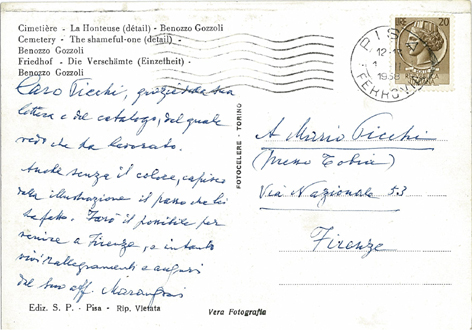 Cimetière - La Honteuse (détail) - Benozzo Gozzoli
Cemetery - The shameful-one (detail) -
Benozzo Gozzoli
Friedhof - Die Verschämte (Einzelheit) -
Benozzo Gozzoli
Caro Ticchi, grazie della sua
lettera e del catalogo, dal quale
vedo che ha lavorato.
Anche senza il colore, capisco
dalle illustrazione il passo che lei
ha fatto. Farò il possibile per
venire a Firenze, e intanto
vivi rallegramenti e auguri
dal suo aff. Marangoni
Ediz. S. P. - Pisa - Rip. Vietata
Vera Fotografia
FOTOCELERE - TORINO
PISA
12-
1
1958
FERROVIA
20
A Mario Ticchi
Via Nazionale 53
Firenze